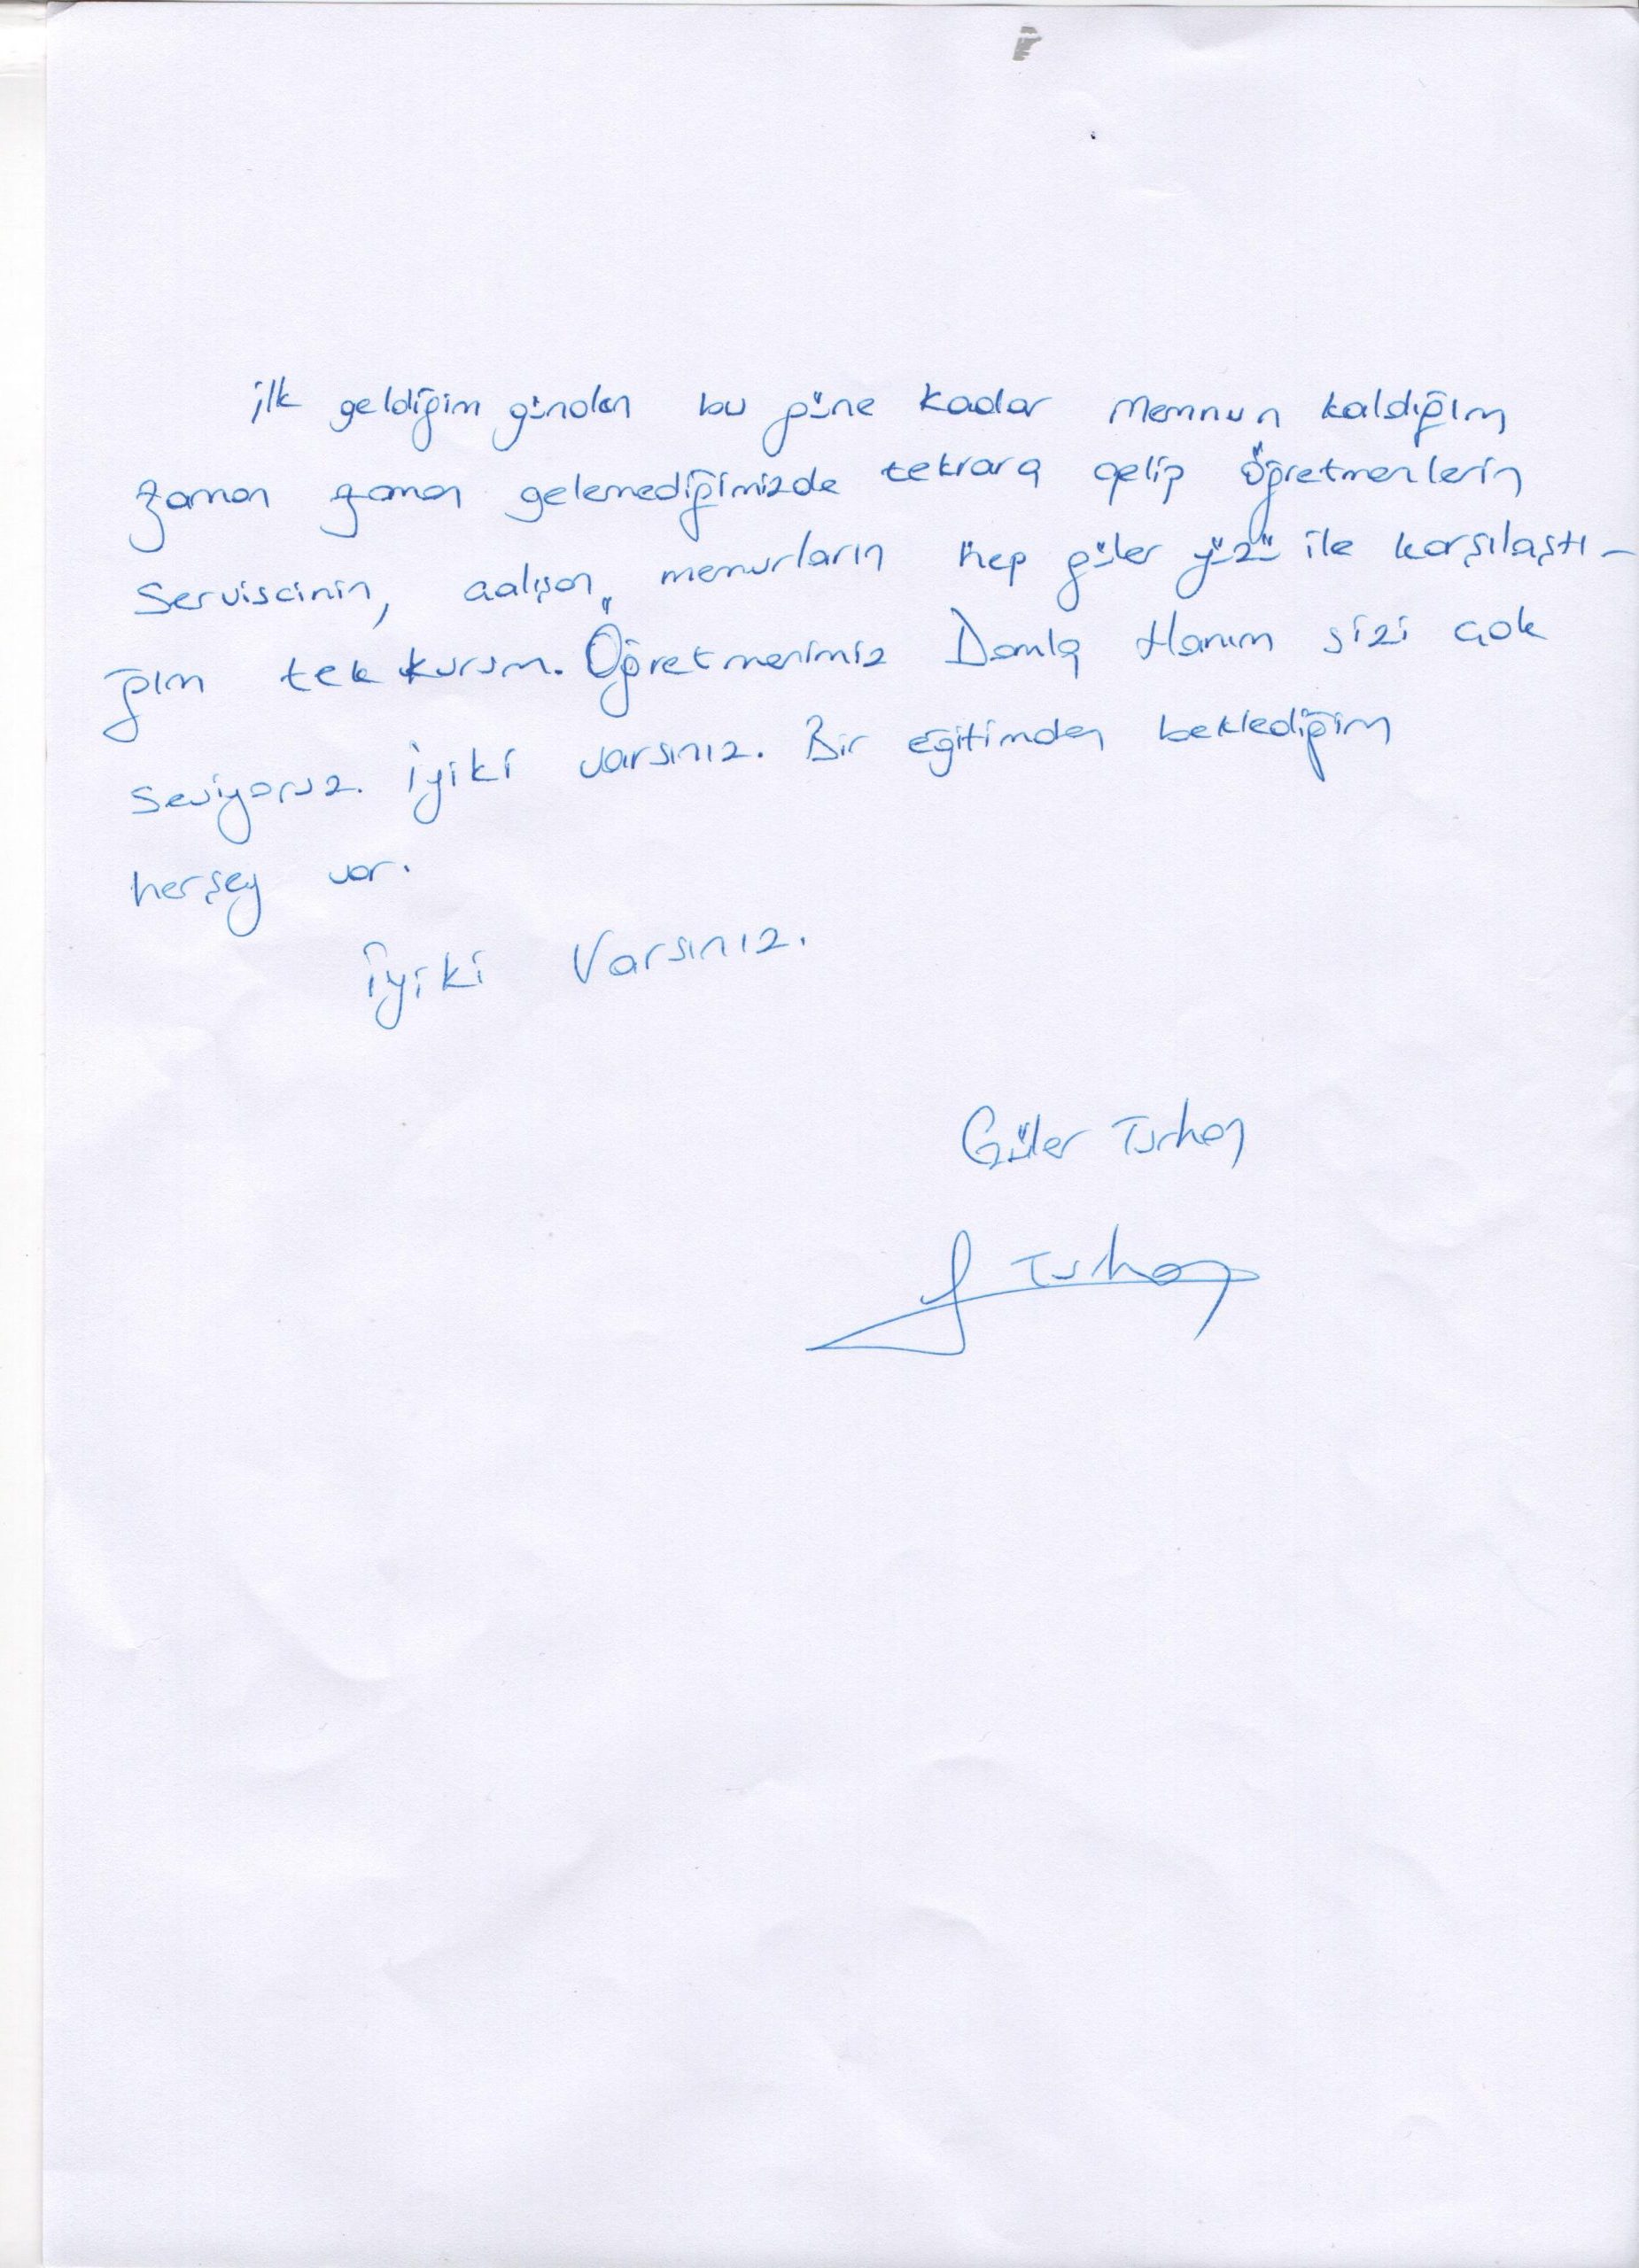 ilk geldiğim günden bu güne kadar memnun kaldığım
zaman zaman gelemediğimizde tekrara gelip öğretmenlerin
Serviscinin, çalışan memurların hep güler yüzü ile karşılaştı-
ğım tek kurum. Öğretmenimiz Damla Hanım sizi çok
seviyoruz. iyiki varsınız. Bir eğitimden beklediğim
herşey var.
iyiki Varsınız.
Güler Turhan
Turhan